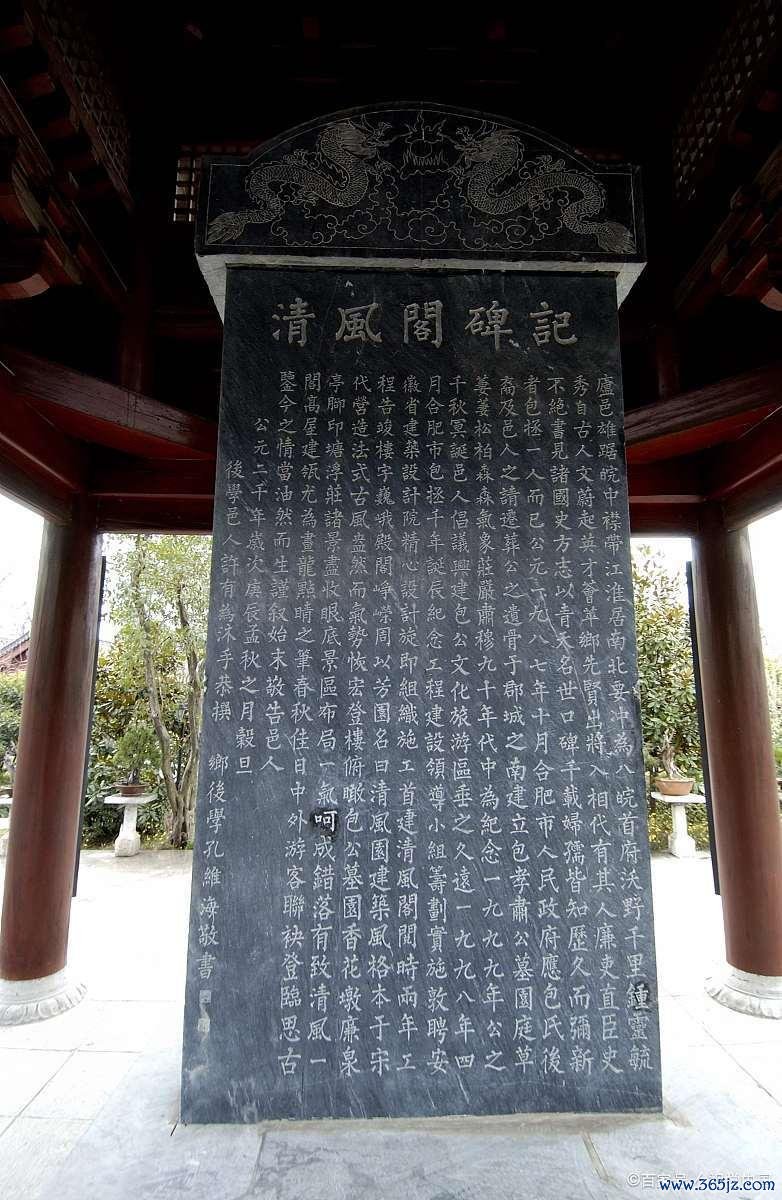 清風閣碑記
廬邑雄踞皖中襟帶江淮居南北要冲為八皖首府沃野千里鍾靈毓
秀自古人文蔚起英才薈萃鄉先賢出將入相代有其人廉吏直臣史
不絕書見諸國史方志以青天名世口碑千載婦孺皆知歷久而彌新
者包拯一人而已公元一九八七年十月合肥市人民政府應包氏後
裔及邑人之請遷葬公之遺骨于郡城之南建立包孝肅公墓園庭草
萋萋松柏森森氣象莊嚴肅穆九十年代中為紀念一九九九年公之
千秋冥誕邑人倡議興建包公文化旅游區垂之久遠一九九八年四
月合肥市包拯千年誕辰紀念工程建設領導小組籌劃實施敦聘安
徽省建築設計院精心設計旋即組織施工首建清風閣閱時兩年工
程告竣樓宇巍峨殿閣崢嶸周以芳園名曰清風園建築風格本于宋
代營造法式古風盎然而氣勢恢宏登樓俯瞰包公墓園香花墩廉泉
亭腳印塘浮莊諸景盡收眼底景區布局一氣呵成錯落有致清風一
閣高屋建瓴尤為畫龍點睛之筆春秋佳日中外游客聯袂登臨思古
鑒今之情當油然而生謹叙始末敬告邑人
公元二千年歲次庚辰孟秋之月穀旦
後學邑人許有為沐手恭撰
鄉後學孔維海敬書
www.365jz.com